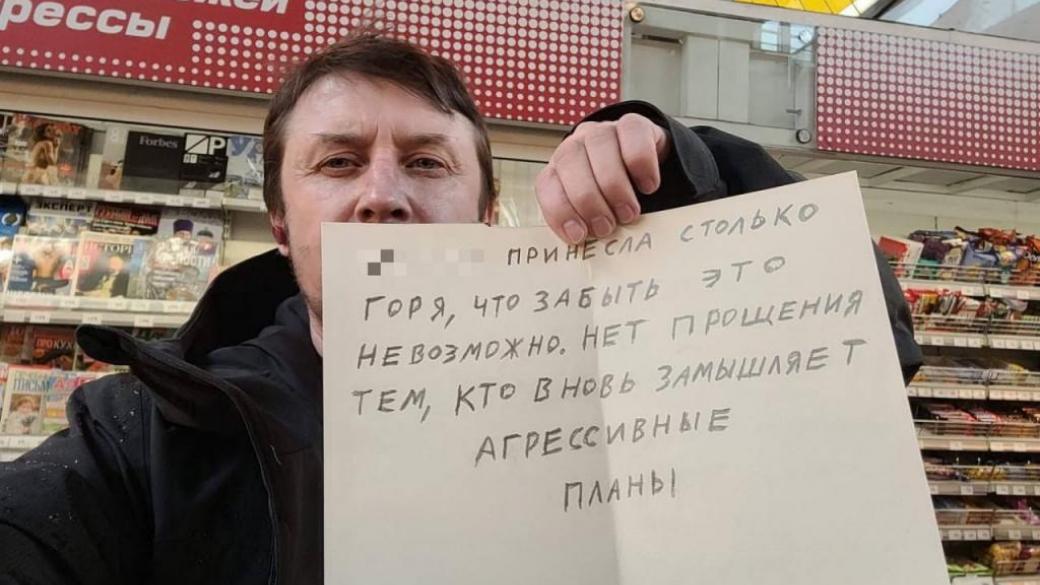 рессы
Forbes
ЭКСПЕРТ
ПРИНЕСЛА СТОЛЬКО
ГОРЯ, ЧТО ЗАБЫТЬ ЭТО
НЕВОЗМОЖНО. НЕТ ПРОЩЕНИЯ
ТЕМ, КТО ВНОВЬ ЗАМЫШЛЯЕТ
АГРЕССИВНЫЕ
ПЛАНЫ